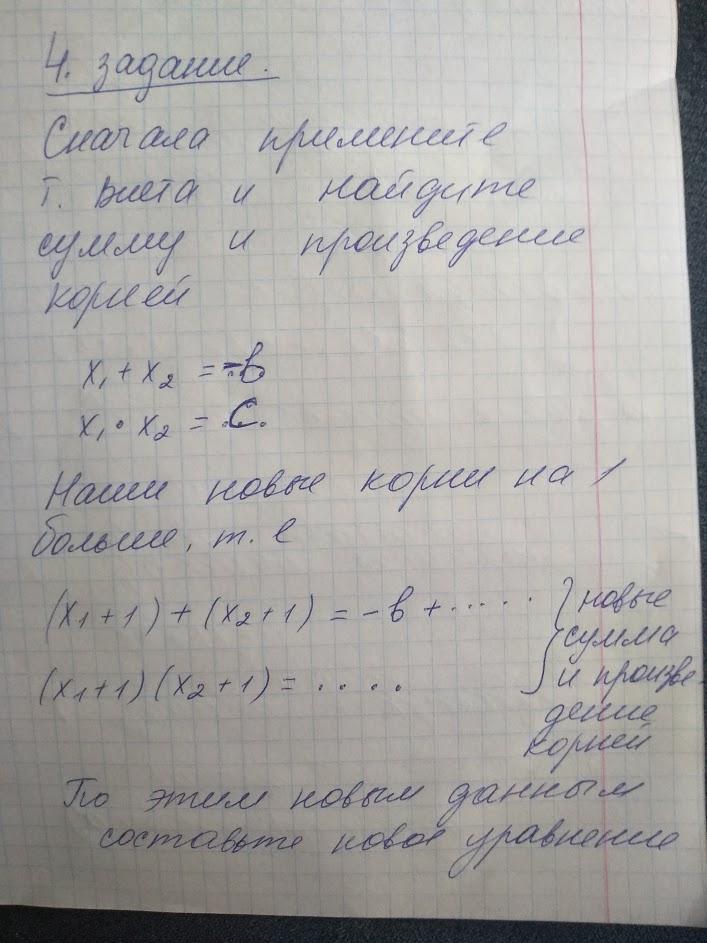 4. задание.
Сначала примените
т. Виета и найдите
сумму и произведение
корней
x₁ + x₂ = -b
x₁ · x₂ = .C.
Наши новые корни на 1
больше, т. е
(x₁ + 1) + (x₂ + 1) = -b + ..... } новые
сумма
(x₁+1)(x₂+1) = .... и произве-
дение
корней
По этим новым данным
составьте новое уравнение